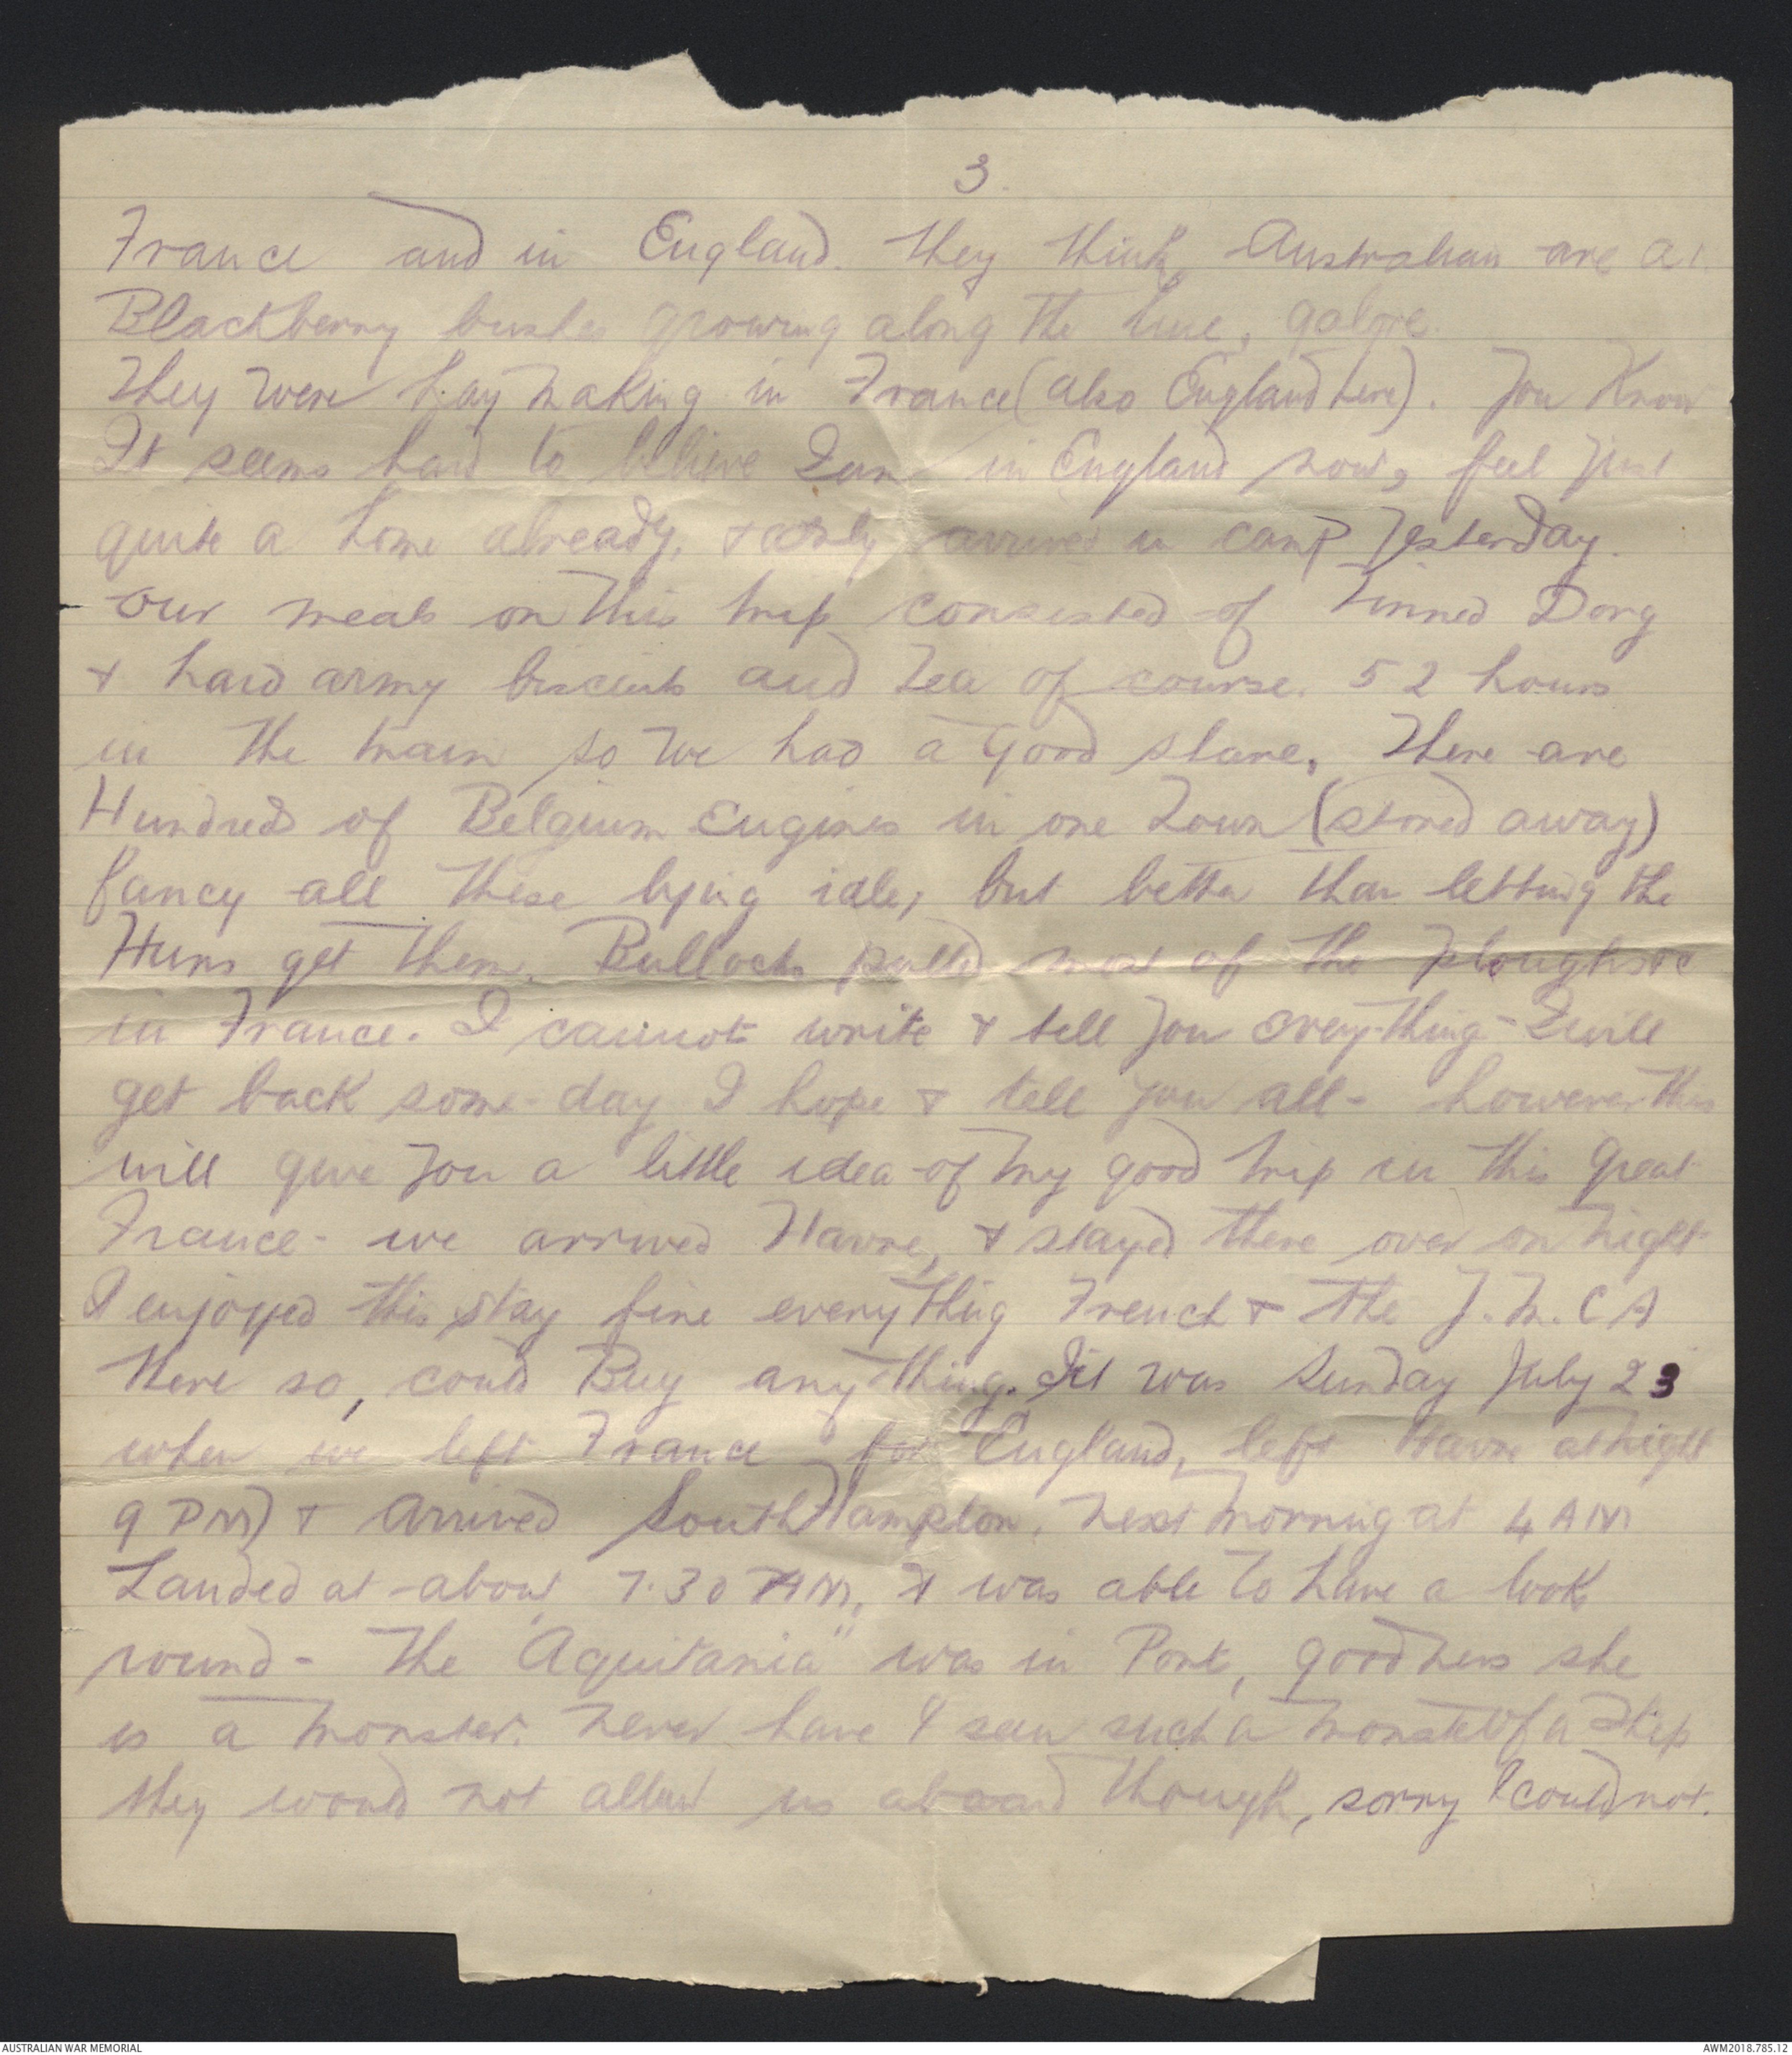 3.
France and in England. They think Australian are A1.
Blackberry bushes growing along the line, galore.
They were hay making in France (also England here). You Know
It seems hard to believe I am in England now, feel just
quite a home already, & only arrived in camp yesterday.
Our meals on this trip consisted of Tinned Dorg
& hard army biscuits and Tea of course. 52 hours
in the train so we had a good share, There are
Hundreds of Belgium Engines in one Town (stored away)
fancy all these lying idle, but better than letting the
Huns get them. Bullocks pulled most of the ploughs &c
in France. I cannot write & tell you every-thing - I will
get back some-day I hope & tell you all - however this
will give you a little idea of my good trip in this great
France - we arrived Havre, & stayed there over on night
I enjoyed this stay fine everything French & the Y.M.C A
there so, could Buy any thing. It was Sunday July 23
when we left France for England, left Havre at night
9 PM & Arrived SouthHampton, next morning at 4 AM
Landed at about 7.30 AM, & was able to have a look
round - The "Aquitania" was in Port, goodness she
is a monster. Never have I seen such a monster of a Ship
they would not allow us aboard though, sorry I could not.
AUSTRALIAN WAR MEMORIAL
AWM2018.785.12